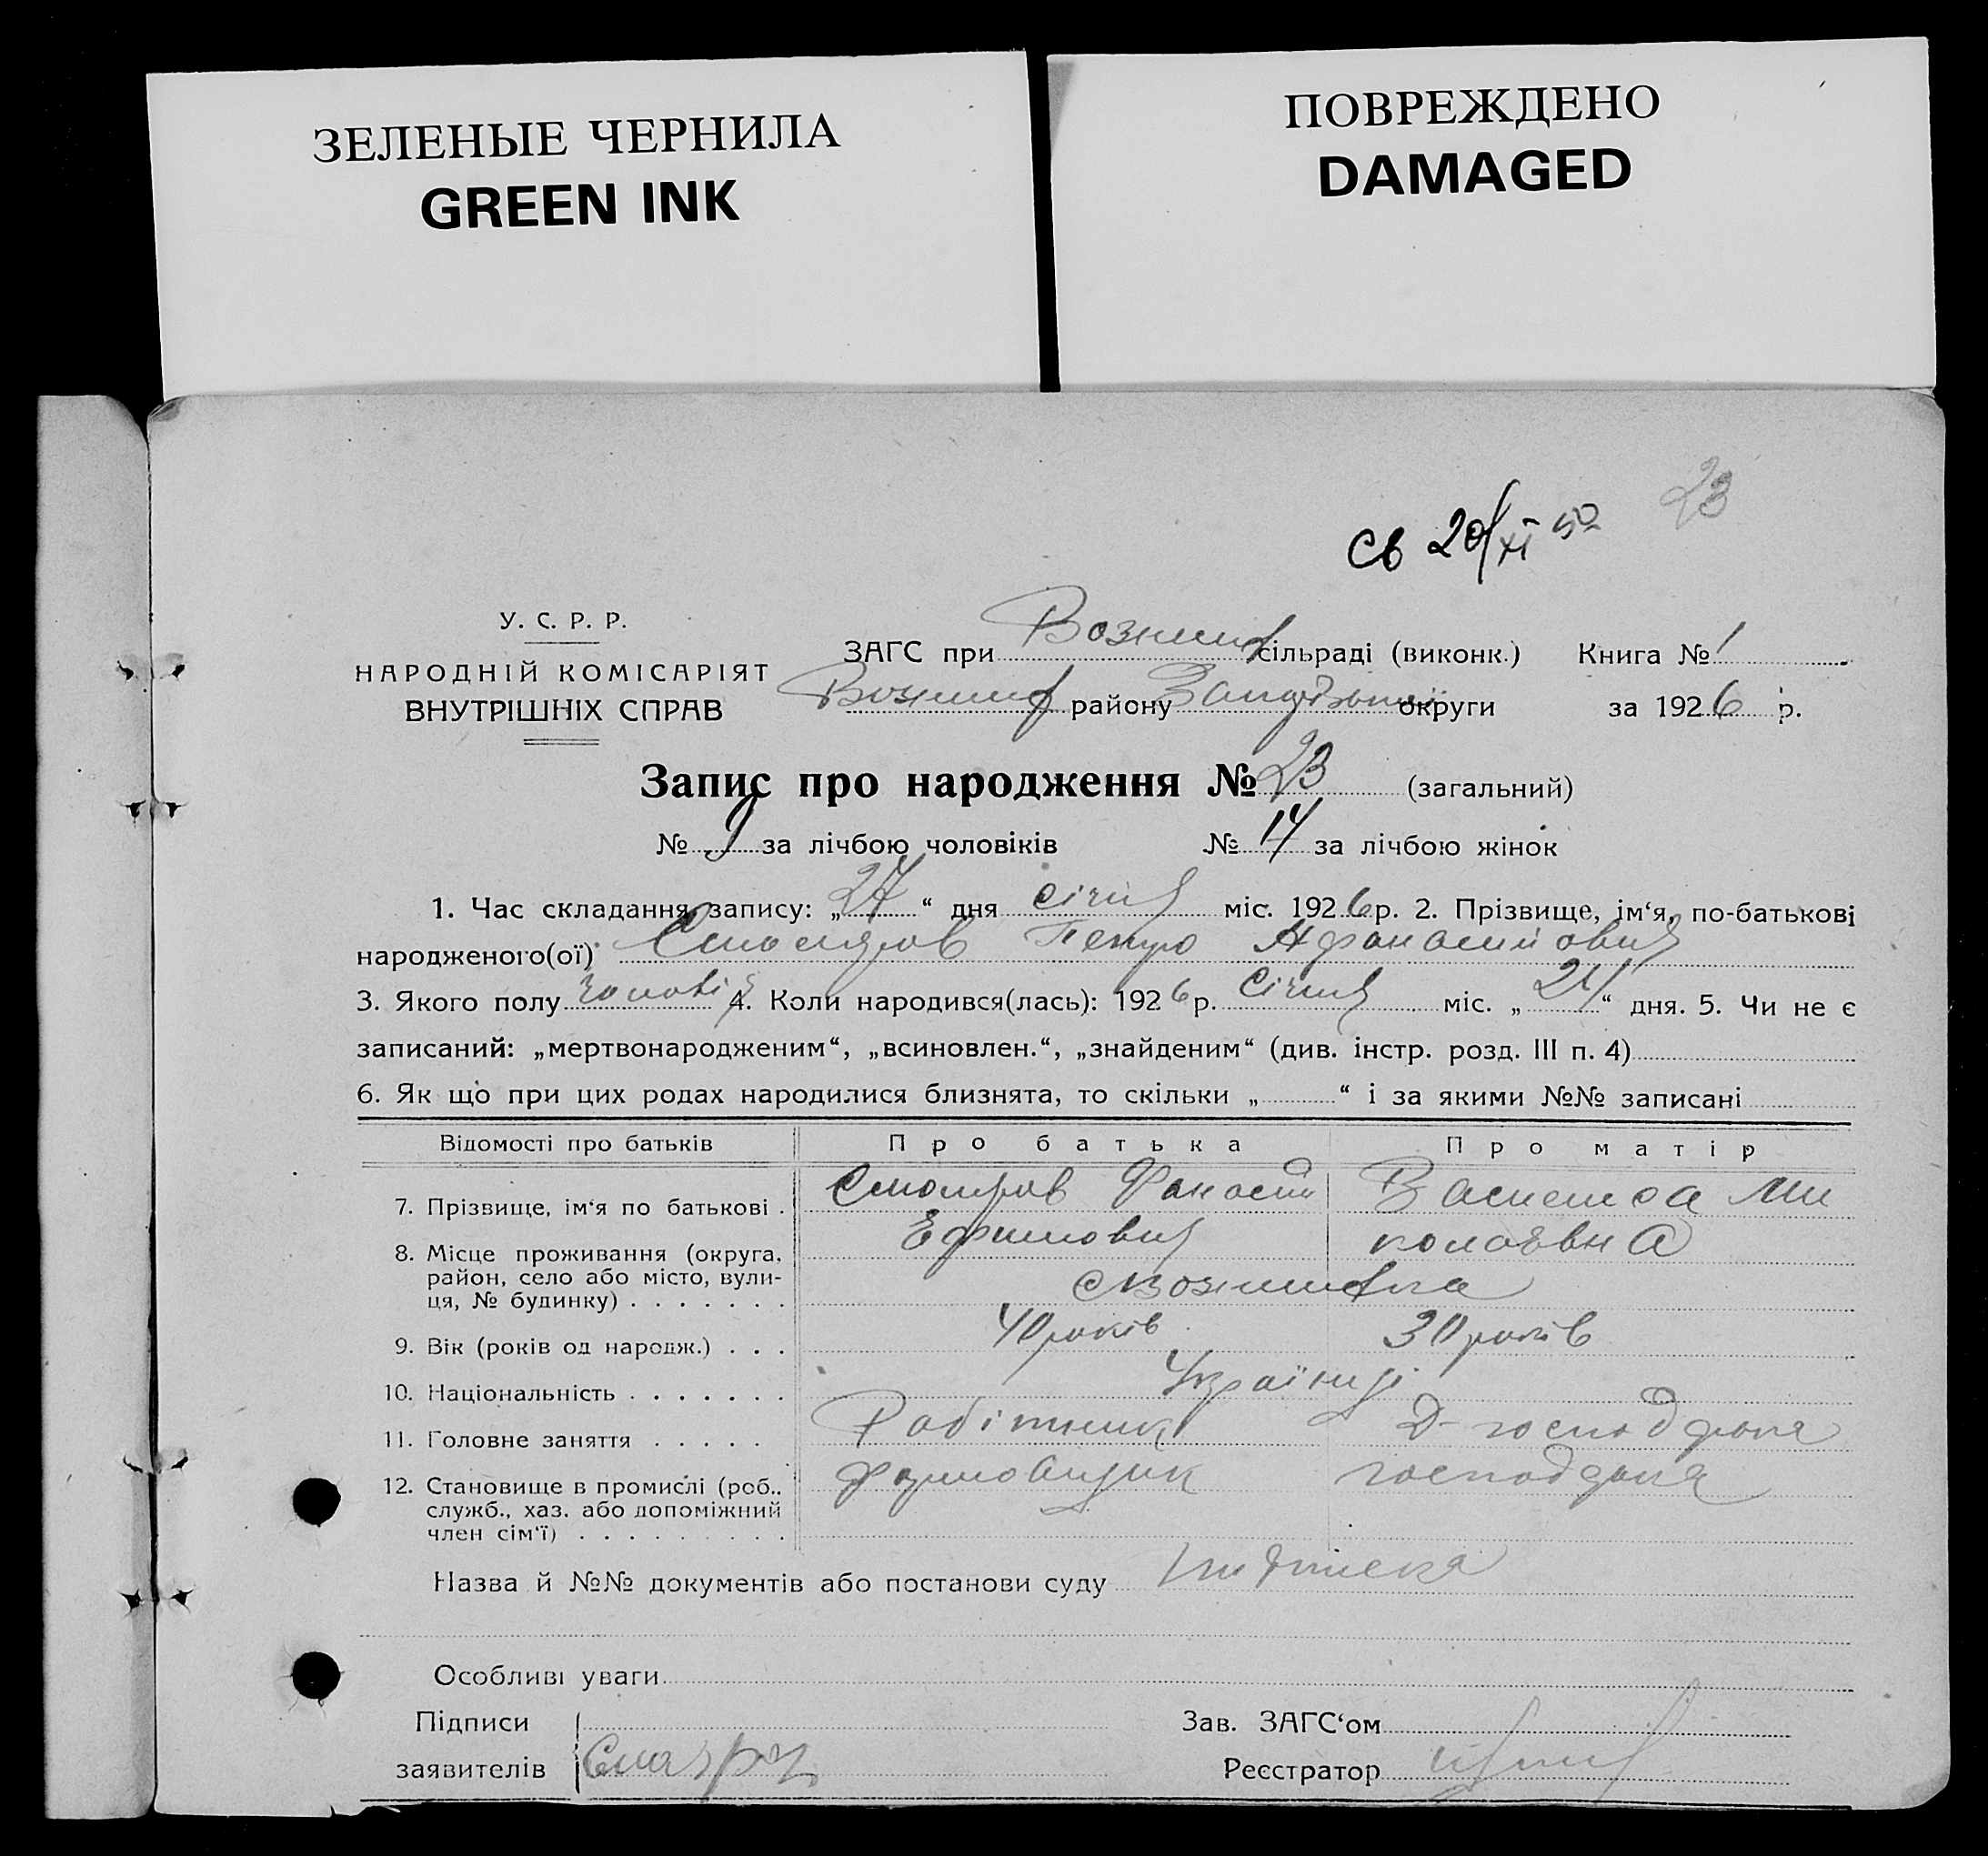 ЗЕЛЕНЫЕ ЧЕРНИЛА
GREEN INK
ПОВРЕЖДЕНО
DAMAGED
23
св 20/XI 50
У. С. Р. Р.
НАРОДНІЙ КОМІСАРІЯТ
ВНУТРІШНІХ СПРАВ
ЗАГС при сільраді (виконк.) Книга № 1
району округи за 1926 р.
Запис про народження № 23 (загальний)
№ 9 за лічбою чоловіків № 14 за лічбою жінок
1. Час складання запису: „27“ дня січня міс. 1926 р. 2. Прізвище, ім‘я, по-батькові
народженого(ої) Петро Афанасийович
3. Якого полу чоловіч 4. Коли народився(лась): 1926 р. Січня міс. „24“ дня. 5. Чи не є
записаний: „мертвонародженим“, „всиновлен.“, „знайденим“ (див. інстр. розд. III п. 4)
6. Як що при цих родах народилися близнята, то скільки „ “ і за якими №№ записані
Відомості про батьків Про батька Про матір
7. Прізвище, ім‘я по батькові . Фанасій Ефимович Василиса Миколаєвна
8. Місце проживання (округа,
район, село або місто, вули-
ця, № будинку) . . . . . . .
9. Вік (років од народж.) . . . 40 років 30 років
10. Національність . . . . . . . Українці
11. Головне заняття . . . . . Робітник Д-господарка
12. Становище в промислі (роб.,
служб., хаз. або допоміжний
член сім‘ї) . . . . . . . . . господарка
Назва й №№ документів або постанови суду підписка
Особливі уваги
Підписи
заявителів
Зав. ЗАГС‘ом
Реєстратор